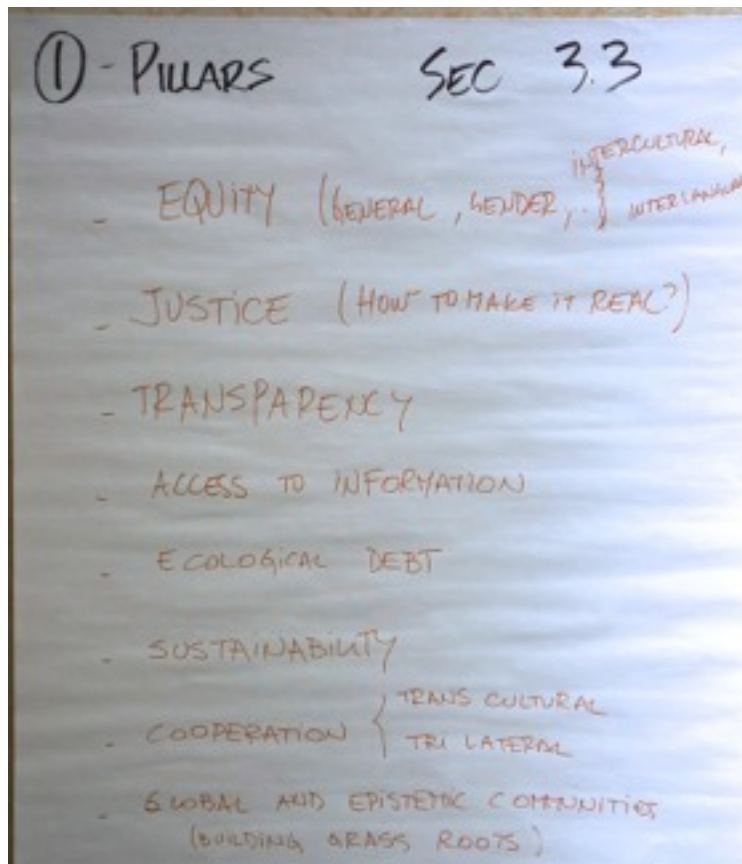 ① - PILLARS SEC 3.3
- EQUITY (GENERAL, GENDER, .. } INTERCULTURAL,
- JUSTICE (HOW TO MAKE IT REAL?)
- TRANSPARENCY
- ACCESS TO INFORMATION
- ECOLOGICAL DEBT
- SUSTAINABILITY
- COOPERATION { TRANS CULTURAL
TRI LATERAL
- GLOBAL AND EPISTEMIC COMMUNITIES
(BUILDING GRASS ROOTS)